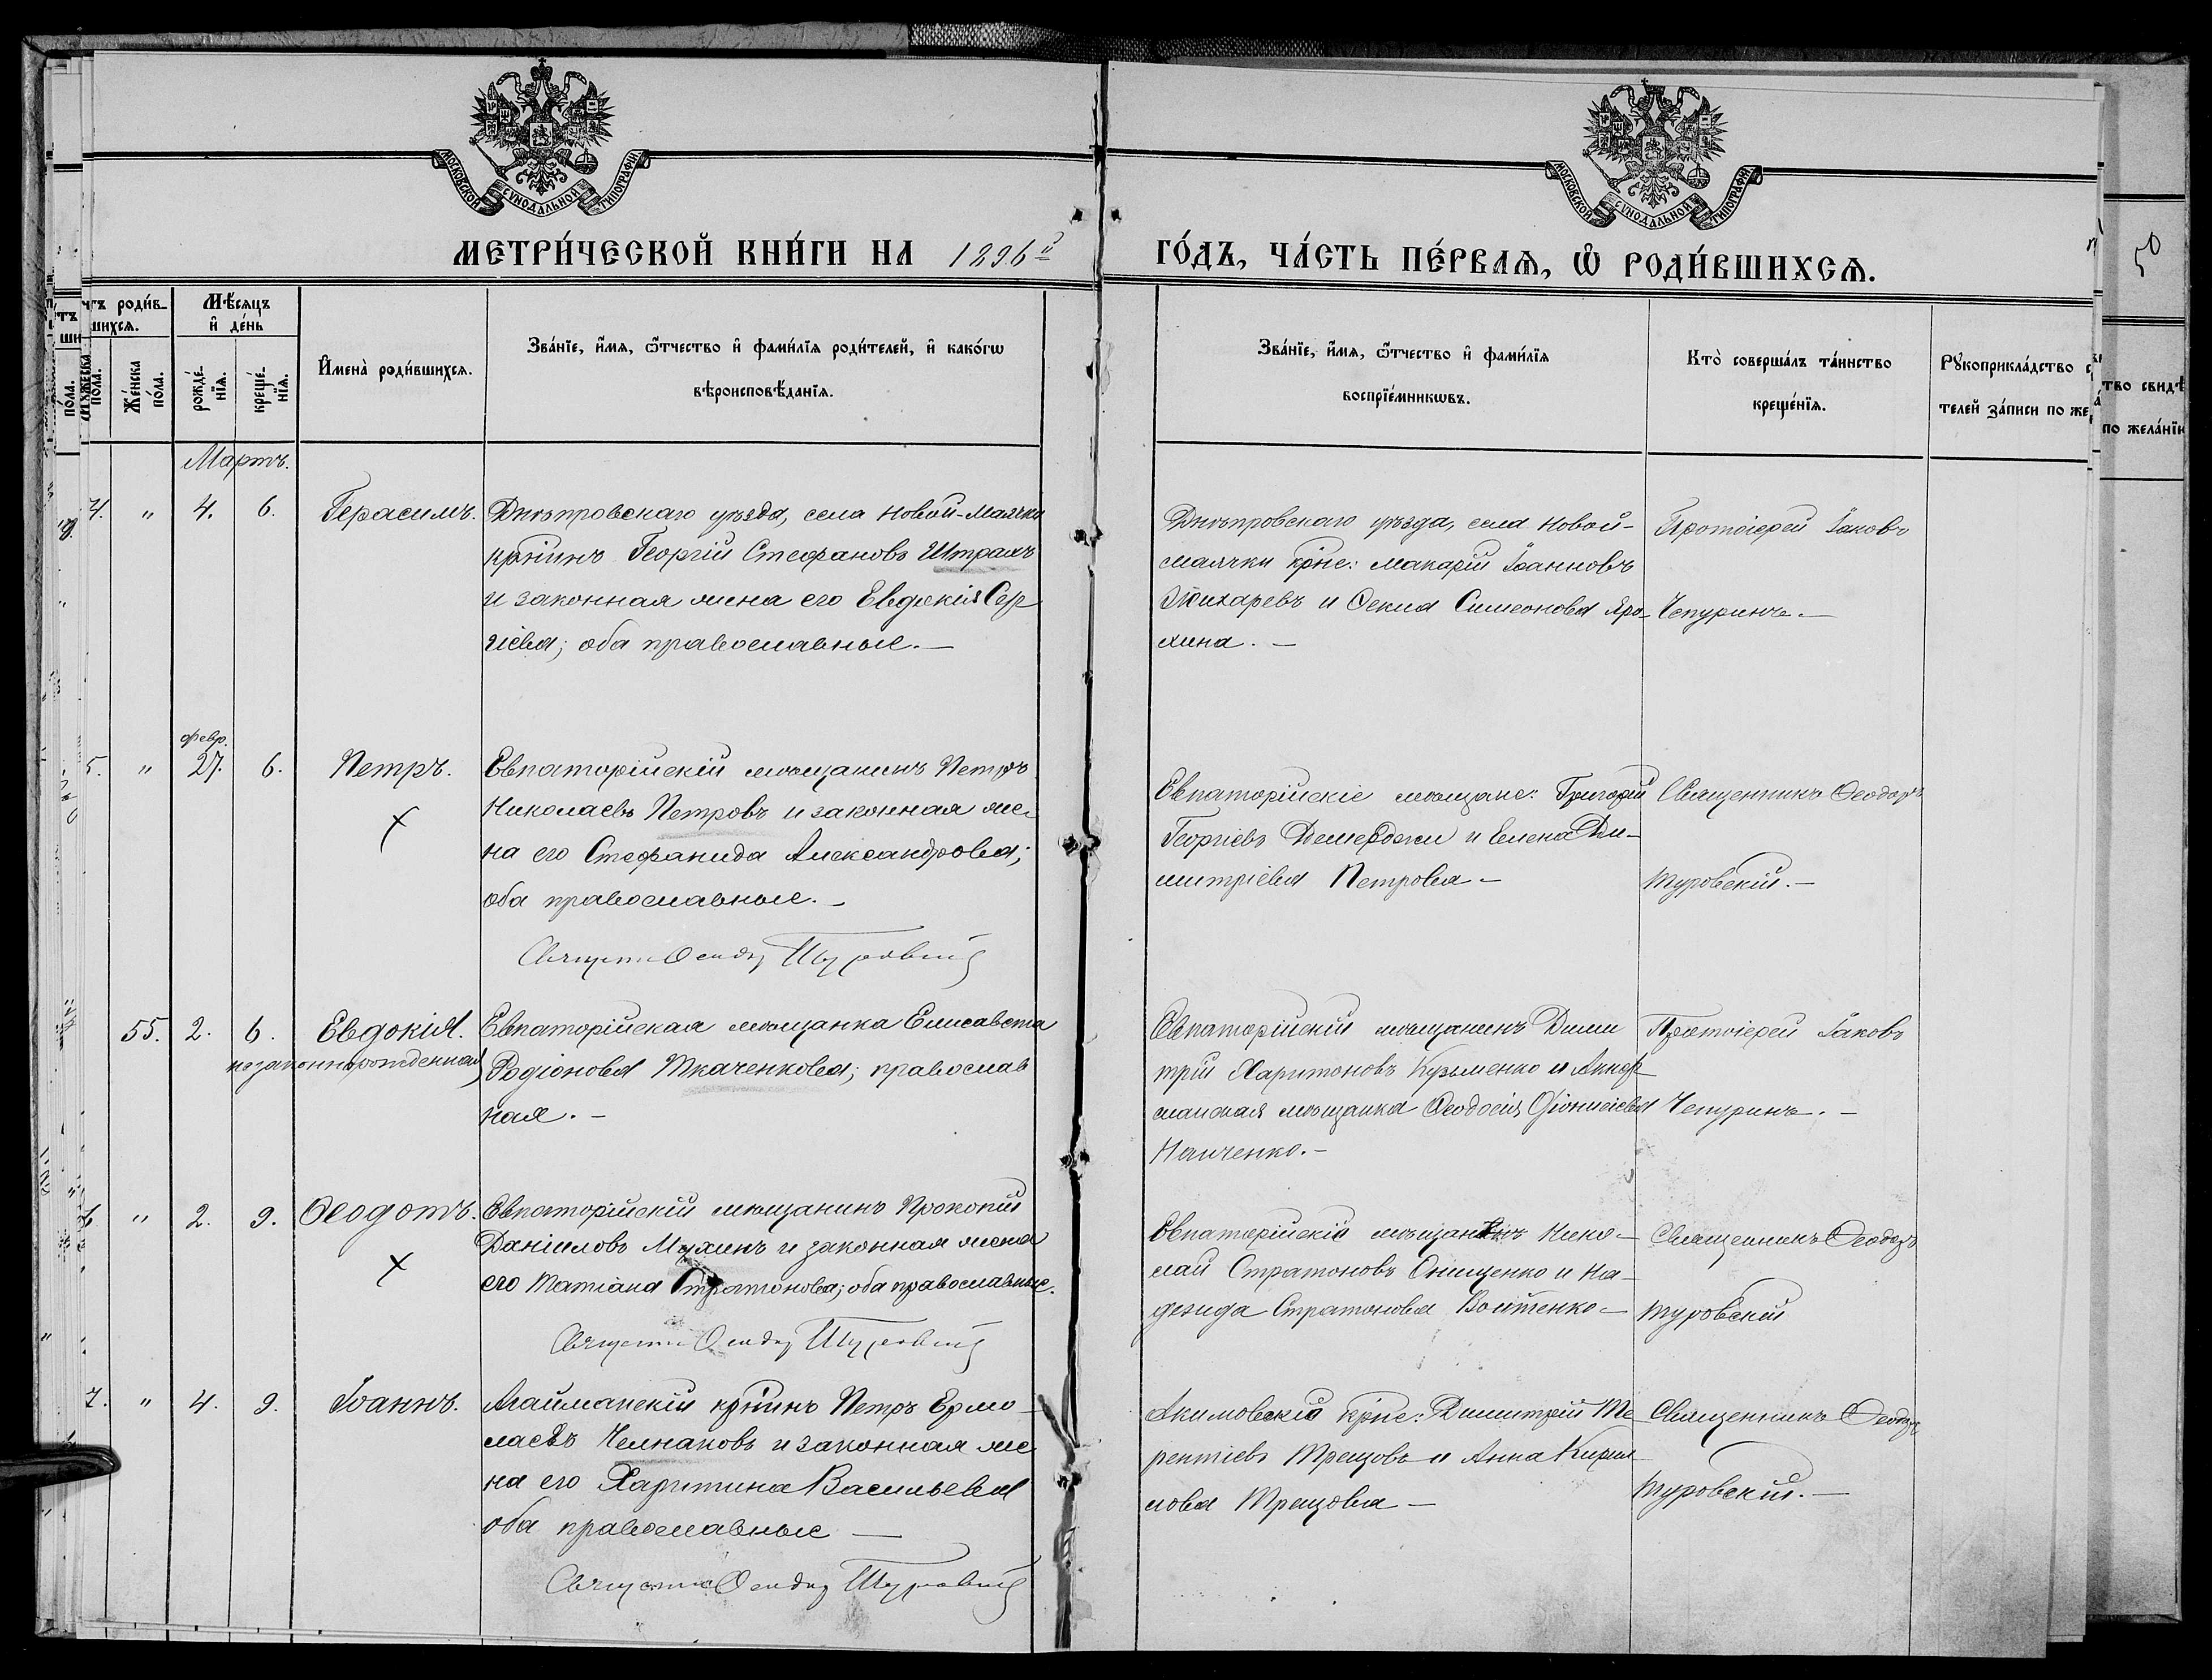 МОСКОВСКОЙ СѴНОДАЛЬНОЙ ТИПОГРАФІИ
МОСКОВСКОЙ СѴНОДАЛЬНОЙ ТИПОГРАФІИ
МЕТРИ́ЧЕСКОЙ КНИ́ГИ НА 1896й
ГО́ДЪ, ЧА́СТЬ ПЕ́РВАѦ, Ѡ҆ РОДИ́ВШИХСѦ.
50
чтъ роди́в-
шихсѧ.
Мѣ́сѧцъ
и҆ де́нь
Мꙋжеска по́ла.
Же́нска по́ла.
рожде́-нїѧ.
креще́-нїѧ.
И҆мена̀ роди́вшихсѧ.
Зва́нїе, и҆́мѧ, ѻ҆́тчество и҆ фами́лїѧ роди́телей, и҆ како́гѡ
вѣроисповѣ́данїѧ.
Зва́нїе, и҆́мѧ, ѻ҆́тчество и҆ фами́лїѧ
воспрїе́мникѡвъ.
Кто̀ соверша́лъ та́инство
креще́нїѧ.
Рꙋкоприкла́дство
телей за́писи по же
тво свидѣ
по жела́нїю
Мартъ.
4. " 4. 6. Герасимъ.
Днѣпровскаго уѣзда, села Новой-Маячки
крнинъ Георгій Стефановъ Штраль
и законная жена его Евдокія Сер
гіева; оба православные. —
Днѣпровскаго уѣзда, села Новой-
маячки крне: Макарій Іоанновъ
и Секлія Симеонова Яро-
хина. —
Протоіерей Іаковъ
Чепуринъ. —
февр.
5. " 27. 6. Петръ.
Евпаторійскій мѣщанинъ Петръ
Николаевъ Петровъ и законная же-
на его Стефанида Александрова;
оба православные. —
Священникъ Ѳеодоръ Туровскій
Евпаторійскіе мѣщане: Григорій
Георгіевъ Демерджи и Елена Ди-
митріева Петрова —
Священникъ Ѳеодоръ
Туровскій. —
55. 2. 6. Евдокія.
незаконнорожденная
Евпаторійская мѣщанка Елисавета
Родіонова Ткаченкова; православ
ная. —
Евпаторійскій мѣщанинъ Дими
трій Харитоновъ Кузьменко и Аккер
манская мѣщанка Ѳеодосія Діонисіева
Чепуринъ. —
Протоіерей Іаковъ
6. " 2. 9. Ѳеодотъ.
Евпаторійскій мѣщанинъ Прокопій
Даніиловъ Мухинъ и законная жена
его Татіана Стратонова; оба православные.
Священникъ Ѳеодоръ Туровскій
Евпаторійскіе мѣщанинъ Нико-
лай Стратоновъ Онищенко и На-
дежда Стратонова Войтенко —
Священникъ Ѳеодоръ
Туровскій
7. " 4. 9. Іоаннъ.
Агайманскій крнинъ Петръ Ермо-
лаевъ Челнаковъ и законная же
на его Харитина Васильева
оба православные —
Священникъ Ѳеодоръ Туровскій
Акимовскіе крне: Димитрій Те-
рентіевъ Трещовъ и Анна Кирил
лова Трещова —
Священникъ Ѳеодоръ
Туровскій. —